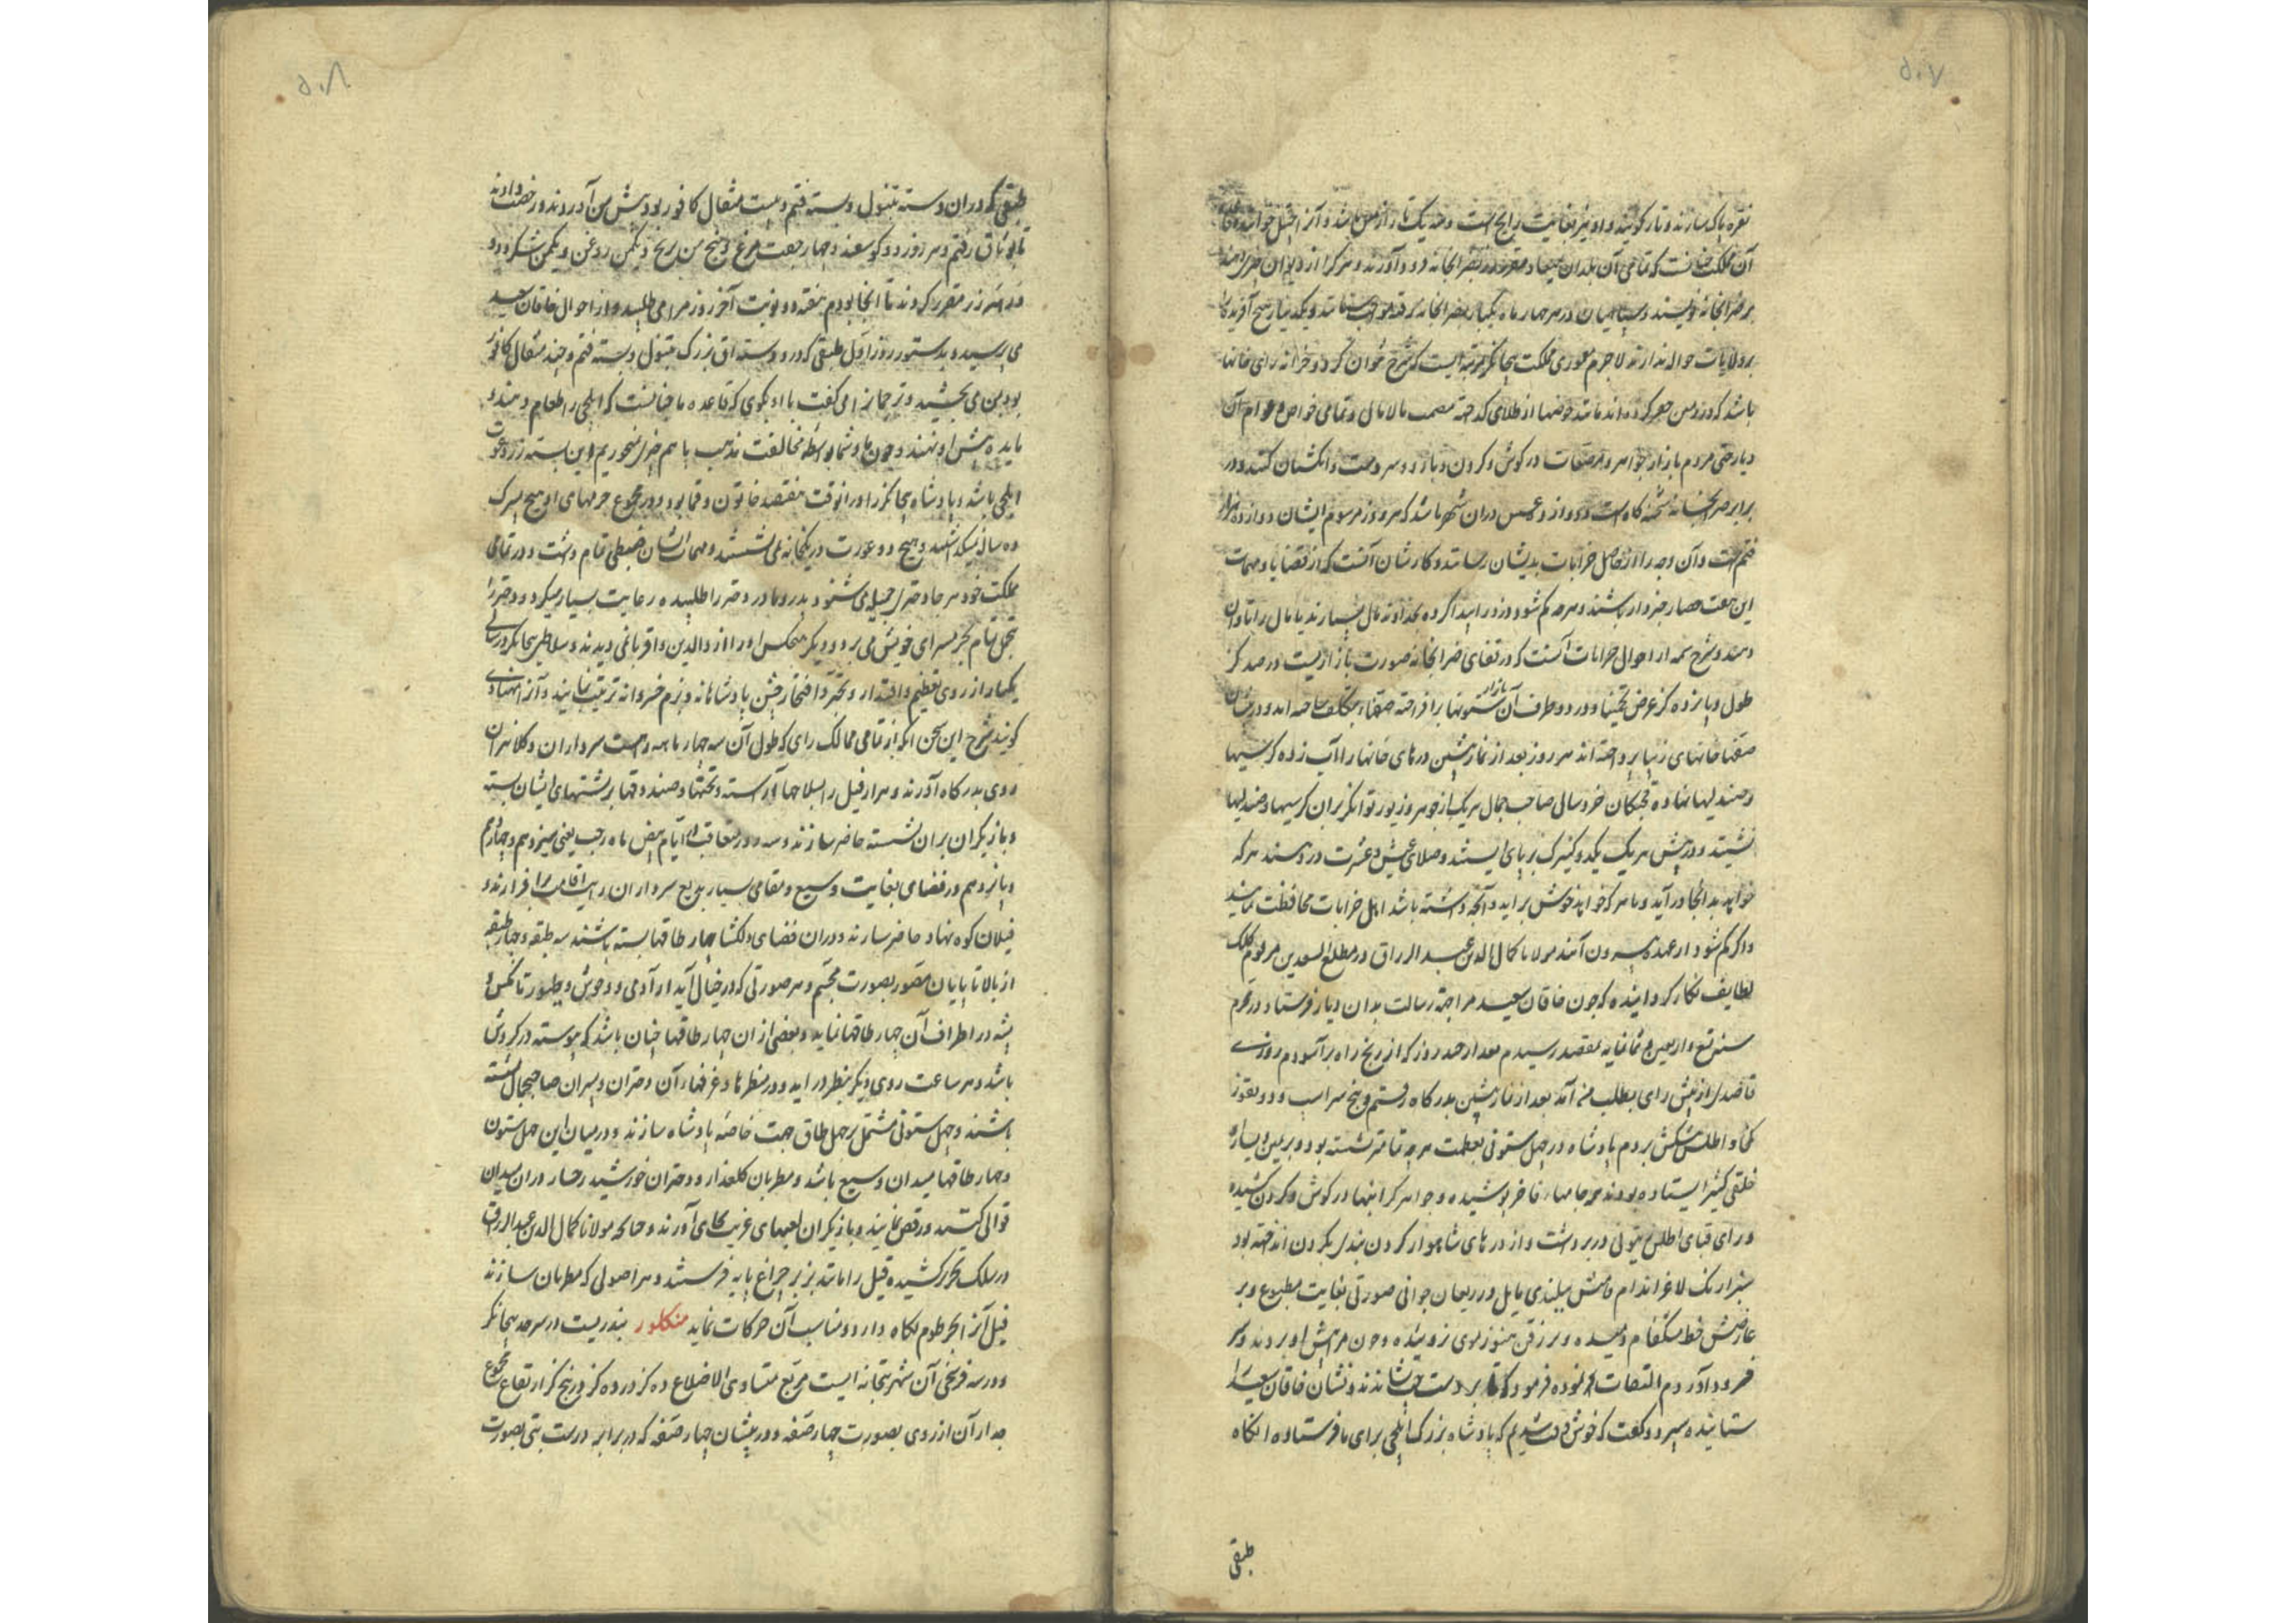 ۵۰۷
نقره پاک سازند و تار کویند و او نیز بغایت رایج است و سه یک تار از مس باشد و آنرا جیتل خوانند و قاعده
آن مملکت چنانست که تمامی آن بلدان بمیعاد مقرر زر بضرابخانه فرود آورند و هر کرا از دیوان چیزی دهند
بر ضرابخانه نویسند و سپاهیان در هر چهار ماه یکبار بضرابخانه رفته مواجب ستانند و یکدینار هیچ آفریده را
بر ولایات حواله ندارند لاجرم معموری مملکت بیجانکر بمرتبه ایست که شرح نتوان کرد و در خزانه رای خانها
باشد که در زمین حفر کرده اند مانند حوضها از طلای کداخته مصمت مالامال و تمامی خواص و عوام آن
دیار حتی مردم بازار جواهر و مرصعات در کوش و کردن و بازو و سر دست و انکشتان کنند و در
برابر ضرابخانه شحنه کاه است و دوازده هزار عسس دران شهر باشد که هر روز مرسوم ایشان دوازده هزار
فنم است و آن وجه را از حاصل خرابات بدیشان رسانند و کار ایشان آنست که از قضایا و مهمات
این هفت حصار خبردار باشند و هرچه کم شود و دزد را پیدا کرده بخداوند مال سپارند یا مال را تاوان
دهند و شرح شمه از احوال خرابات آنست که در قفای ضرابخانه صورت بازاریست در صد کز
طول و پانزده کز عرض تخمینا و در دو طرف آن بازار ستونها برافراخته صفهاء بتکلف ساخته اند و در پیشان
صفها خانهای زیبا پرداخته اند هر روز بعد از نماز پیشین درهای خانها را آب زده کرسیها
و صندلیها نهاده قحبکان خردسال صاحب جمال هر یک از جوهر و زیور توانکر بران کرسیها و صندلیها
نشینند و در پیش هر یک یکدو کنیزک بر پای ایستند و صلای عیش و عشرت در دهند هر که
خواهد بدانجا درآید و با هر که خواهد خوش برآید و آنچه داشته باشد اهل خرابات محافظت نمایند
و اکر کم شود از عهده بیرون آیند مولانا کمال الدین عبد الرزاق در مطلع السعدین مرقوم کلک
لطایف نکار کردانیده که چون خاقان سعید مرا بجهة رسالت بدان دیار فرستاد در محرم
سنه سبع و اربعین و ثمانمایه بمقصد رسیدم بعد از چند روز که از رنج راه برآسودم روزی
قاصدی از پیش رای بطلب منه آمد بعد از نماز پیشین بدرکاه رفتم و پنج سر اسب و دو تقوز
کمخا و اطلس پیشکش بردم پادشاه در چهل ستونی بعظمت هرچه تمامتر نشسته بود و بر یمین و یسار
خلقی کثیر ایستاده بودند همه جامهاء فاخر پوشیده و جواهر کرانبها در کوش و کردن کشیده
و رای قبای اطلس زیتونی در بر داشت و از درهای شاهوار کردن بندی بکردن انداخته بود
سبز رنک لاغر اندام قامتش ببلندی مایل در ریعان جوانی صورتی بغایت مطبوع و بر
عارضش خط مشکفام دمیده و بر زقن هنوز موی نروییده و چون مرا پیش او بردند سر
فرود آوردم التفات نموده فرمود که تا بر دست چپ نشانند و نشان خاقان سعید را
ستانیده سپرد و کفت که خوش وقت شدیم که پادشاه بزرک ایلچی برای ما فرستاده انکاه
طبقی
۵۰۸
طبقی که دران دو دسته تنبول و بسته فنم و بیست مثقال کافور بود پیش من آوردند و رخصت دادند
تا بوثاق رفتم و هر روز دو کوسفند و چهار جفت مرغ و پنج من برنج و یکمن روغن و یکمن شکر و دو
ورهه زر مقرر کردند تا انجا بودم هفته دو نوبت آخر روز مرا می طلبید و از احوال خاقان سعید
می پرسید و بدستور روز اول طبقی که درو دسته اق بزرک تنبول و بسته فنم و چند مثقال کافور
بود بمن می بخشید و ترجمانرا می کفت با او بکوی که قاعده ما چنانست که ایلچی را طعام دهند و
مایده پیش او نهند و چون ما و شما بواسطه مخالفت مذهب با هم چیزی نمیخوریم این بسته زر دعوت
ایلچی باشد و پادشاه بیجانکر را دران وقت هفتصد خاتون و قما بود و در مجموع حرمهای او هیچ پسرک
ده ساله نمیکذاشتند و هیچ دو عورت در یکخانه نمی نشستند و مهمات ایشان ضبطی تمام داشت و در تمامی
مملکت خود هر جا دختری جمیله می شنود پدر و مادر دختر را طلبیده رعایت بسیار میکرد و دختر را
بتجمل تمام بحرم سرای خویش می برد و دیکر هیچکس او را از والدین و اقربا نمی دیدند و سلاطین بیجانکر در سالی
یکبار از روی تعظیم و اقتدار و تفخر و افتخار جشن پادشاهانه و بزم خسروانه ترتیب نمایند و آنرا مهانادی
کویند شرح این سخن آنکه از تمامی ممالک رای که طول آن سه چهار ماهه راهست سرداران و کلانتران
روی بدرکاه آورند و هزار فیل را بسلاحها آراسته و تختها و صندوقها بر پشتهای ایشان بسته
و بازیکران بران نشسته حاضر سازند و سه روز متعاقب ایام بیض ماه رجب یعنی سیزدهم و چهاردهم
و پانزدهم در فضایی بغایت وسیع و مقامی بسیار بدیع سرداران رایات اقامت برافرازند و
فیلان کوه نهاد حاضر سازند و دران فضای دلکشا چهار طاقها بسته باشند سه طبقه و چهار طبقه
از بالا تا پایان مصور بصورت مجسم و هر صورتی که در خیال آید از آدمی و وحوش و طیور تا مکس و
پشه در اطراف آن چهار طاقها نماید و بعضی از ان چهار طاقها چنان باشد که پیوسته در کردش
باشد و هر ساعت روی دیکر بنظر دراید و در منظرها و غرفهاء آن دختران و پسران صاحبجمال نشسته
باشند و چهل ستونی مشتمل بر چهل طاق جهت خاصه پادشاه سازند و در میان این چهل ستون
و چهار طاقها میدان وسیع باشد و مطربان کلعذار و دختران خورشید رخسار دران میدان
قوالی کنند و رقص نمایند و بازیکران لعبهای غریب بجای آورند و چنانچه مولانا کمال الدین عبد الرزاق
در سلک تحریر کشیده فیل را مانند بز بر چراغ پایه فرستند و هر اصولی که مطربان سازند
فیل آنرا بخرطوم نکاه دارد و مناسب آن حرکات نماید منکلور بندریست در سرحد بیجانکر
و در سه فرسخی آن شهر بتخانه ایست مربع متساوی الاضلاع ده کز در ده کز و پنج کز ارتفاع مجموع
جدار آن از روی بصورت چهار صفه و در پیشان چهار صفه که در برابر درست بتی بصورت